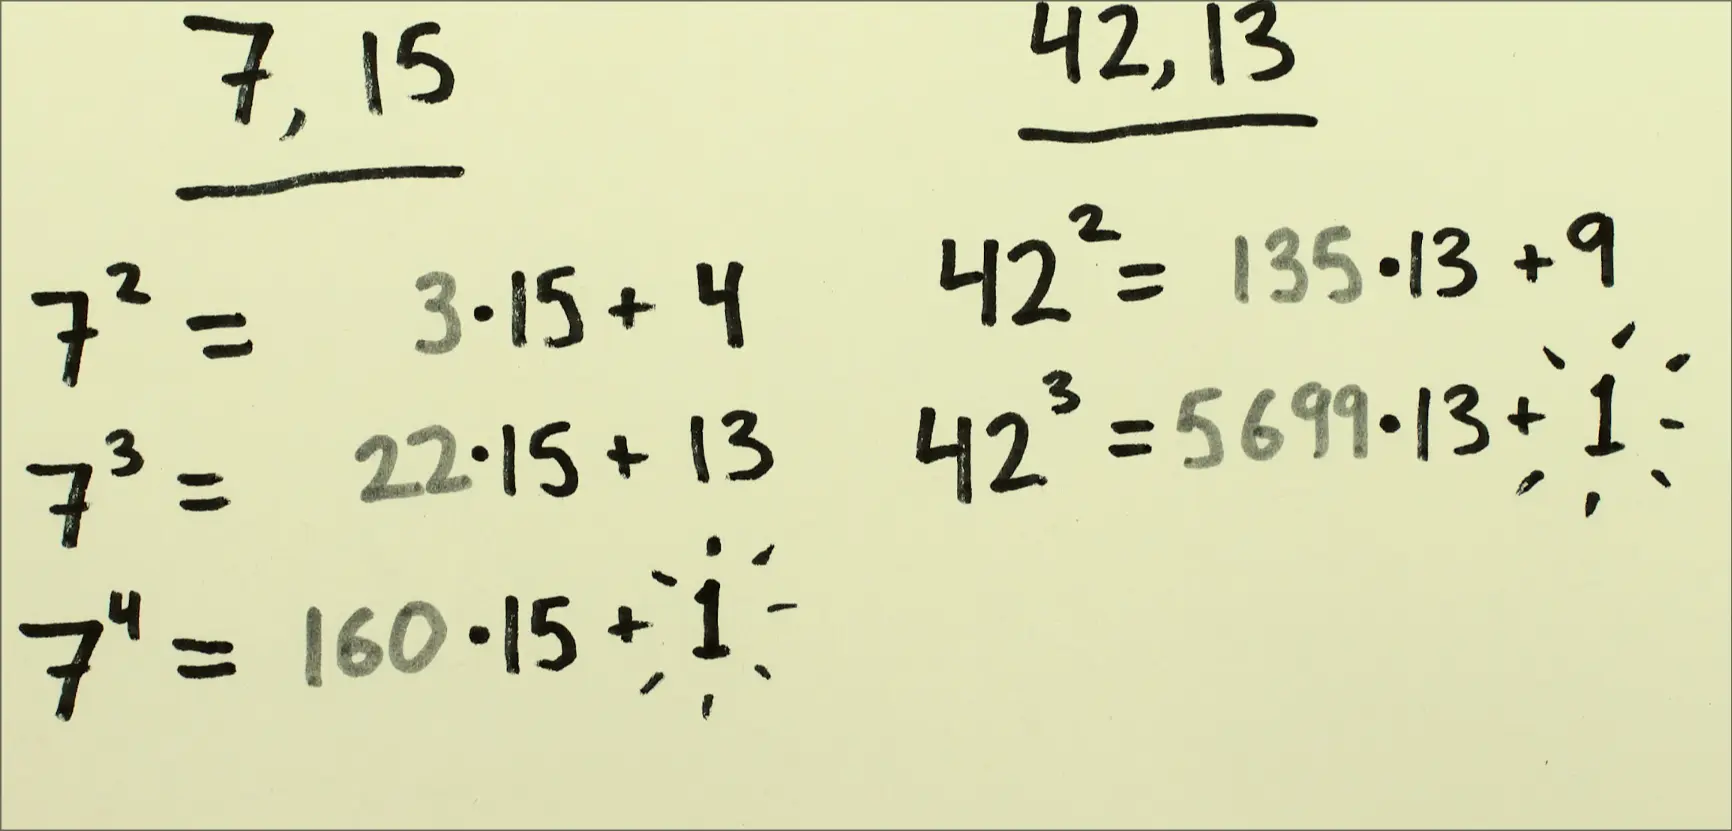 7, 15
7² = 3·15 + 4
7³ = 22·15 + 13
7⁴ = 160·15 + 1
42, 13
42² = 135·13 + 9
42³ = 5699·13 + 1